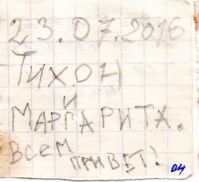 23.07.2016
ТИХОН
И
МАРГАРИТА.
ВСЕМ ПРИВЕТ!